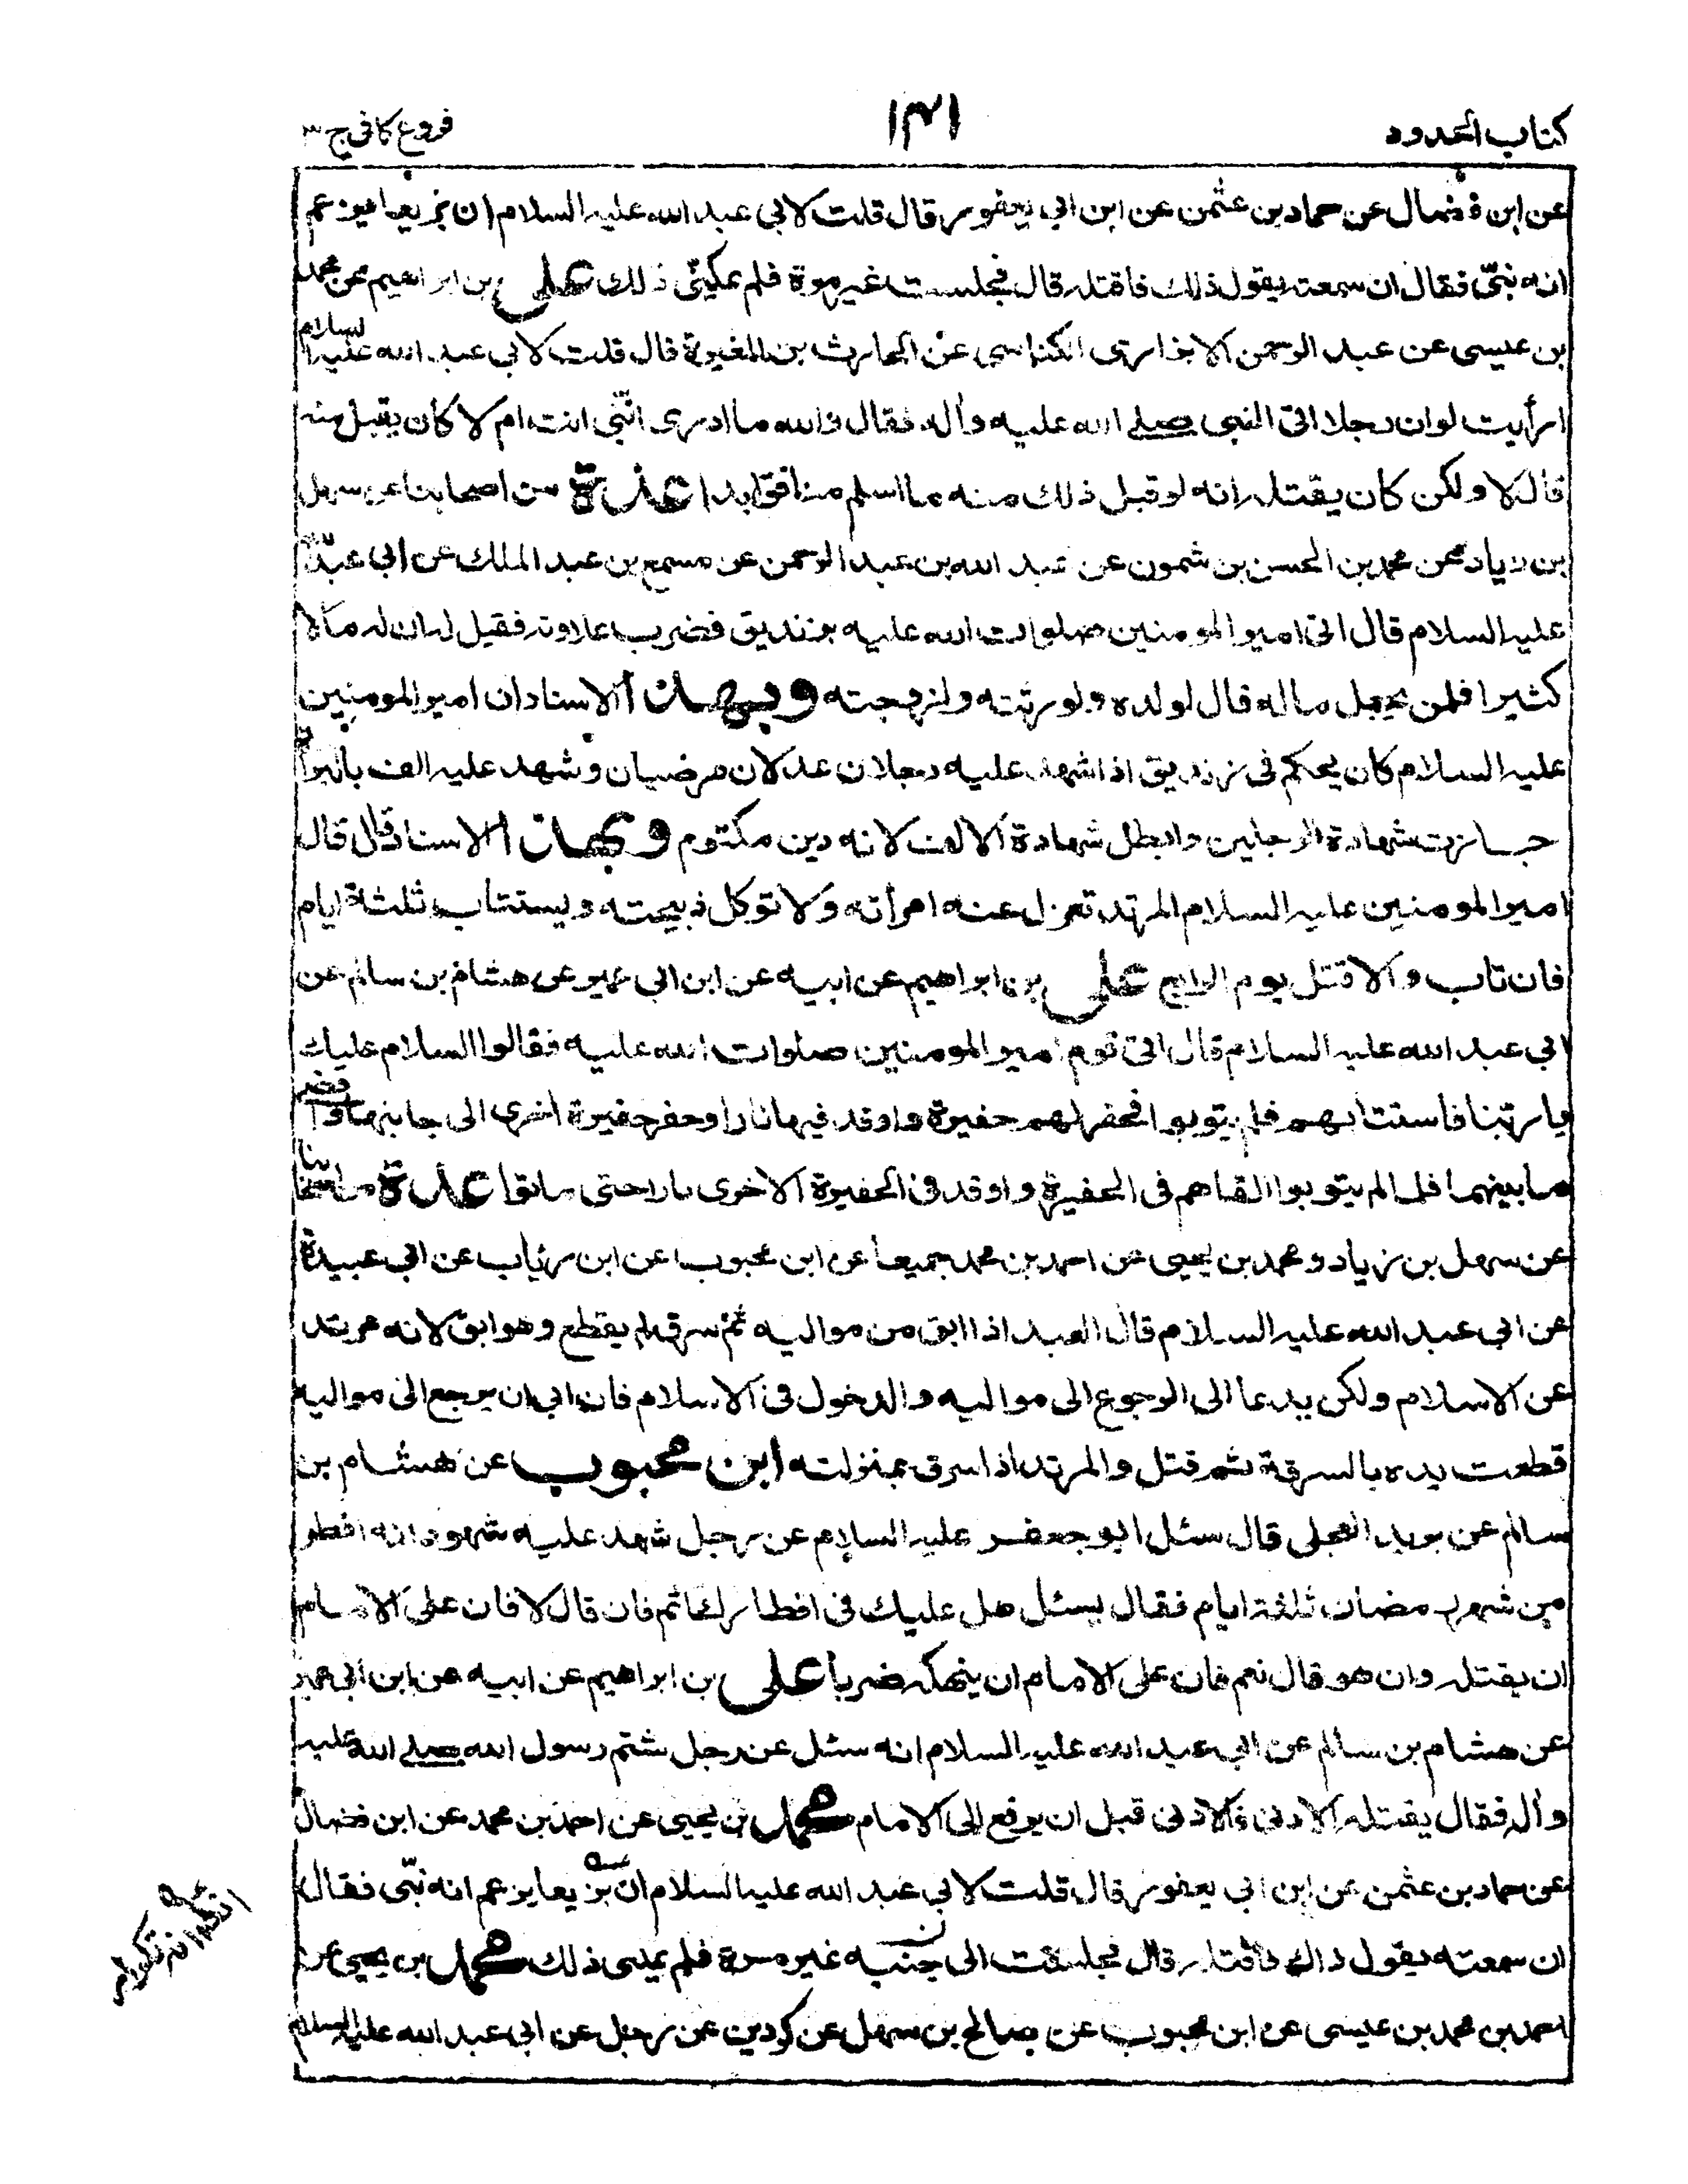 كتاب الحدود
١٣١
فروع كافى ج ٣
عن ابن فضال عن حماد بن عثمن عن ابن ابى يعفور قال قلت لابى عبد الله عليه السلام ان بزيعا يزعم
انه نبىّ فقال ان سمعته يقول ذلك فاقتله قال فجلست غير مرة فلم يمكنّى ذلك على بن ابراهيم عن محمد
بن عيسى عن عبد الرحمن الابزارى الكناسى عن الحارث بن المغيرة قال قلت لابى عبد الله عليه السلام
ارأيت لو ان رجلا اتى النبى صلى الله عليه واله فقال والله ما ادرى انبّى انت ام لا كان يقبل منه
قال لا ولكن كان يقتله انه لو قبل ذلك منه ما اسلم منافق ابدا عدة من اصحابنا عن سهل
بن زياد عن محمد بن الحسن بن شمون عن عبد الله بن عبد الرحمن عن مسمع بن عبد الملك عن ابى عبد الله
عليه السلام قال اتى امير المومنين صلوات الله عليه بزنديق فضرب علاوته فقيل له ان له مالا
كثيرا فلمن يجعل ماله قال لولده ولورثته ولزوجته وبهذا الاسناد ان امير المومنين
عليه السلام كان يحكم فى زنديق اذا شهد عليه رجلان عدلان مرضيان وشهد عليه الف بالبراءة
جازت شهادة الرجلين وابطل شهادة الالف لانه دين مكتوم وبهذا الاسناد قال قال
امير المومنين عليه السلام المرتد تعزل عنه امرأته ولا توكل ذبيحته ويستتاب ثلثة ايام
فان تاب والا قتل يوم الرابع على بن ابراهيم عن ابيه عن ابن ابى عمير عن هشام بن سالم عن
ابى عبد الله عليه السلام قال اتى قوم امير المومنين صلوات الله عليه فقالوا السلام عليك
يا ربنا فاستتابهم فلم يتوبوا فحفر لهم حفيرة واوقد فيها نارا وحفر حفيرة اخرى الى جانبها وافضى
ما بينهما فلما لم يتوبوا القاهم فى الحفيرة واوقد فى الحفيرة الاخرى نارا حتى ماتوا عدة من اصحابنا
عن سهل بن زياد ومحمد بن يحيى عن احمد بن محمد جميعا عن ابن محبوب عن ابن رئاب عن ابى عبيدة
عن ابى عبد الله عليه السلام قال العبد اذا ابق من مواليه ثم سرق لم يقطع وهو ابق لانه مرتد
عن الاسلام ولكن يدعا الى الرجوع الى مواليه والدخول فى الاسلام فان ابى ان يرجع الى مواليه
قطعت يده بالسرقة ثم قتل والمرتد اذا سرق بمنزلته ابن محبوب عن هشام بن
سالم عن بريد العجلى قال سئل ابو جعفر عليه السلام عن رجل شهد عليه شهود انه افطر
من شهر رمضان ثلثة ايام فقال يسئل هل عليك فى افطارك اثم فان قال لا فان على الامام
ان يقتله وان هو قال نعم فان على الامام ان ينهكه ضربا على بن ابراهيم عن ابيه عن ابن ابى عمير
عن هشام بن سالم عن ابى عبد الله عليه السلام انه سئل عن رجل شتم رسول الله صلى الله عليه
واله فقال يقتله الادنى فالادنى قبل ان يرفع الى الامام محمد بن يحيى عن احمد بن محمد عن ابن فضال
عن حماد بن عثمن عن ابن ابى يعفور قال قلت لابى عبد الله عليه السلام ان بزيعا يزعم انه نبّى فقال
ان سمعته يقول ذلك فاقتله قال فجلست الى جنبه غير مرة فلم يمكنى ذلك محمد بن يحيى عن
احمد بن محمد بن عيسى عن ابن محبوب عن صالح بن سهل عن كردين عن رجل عن ابى عبد الله عليه السلام